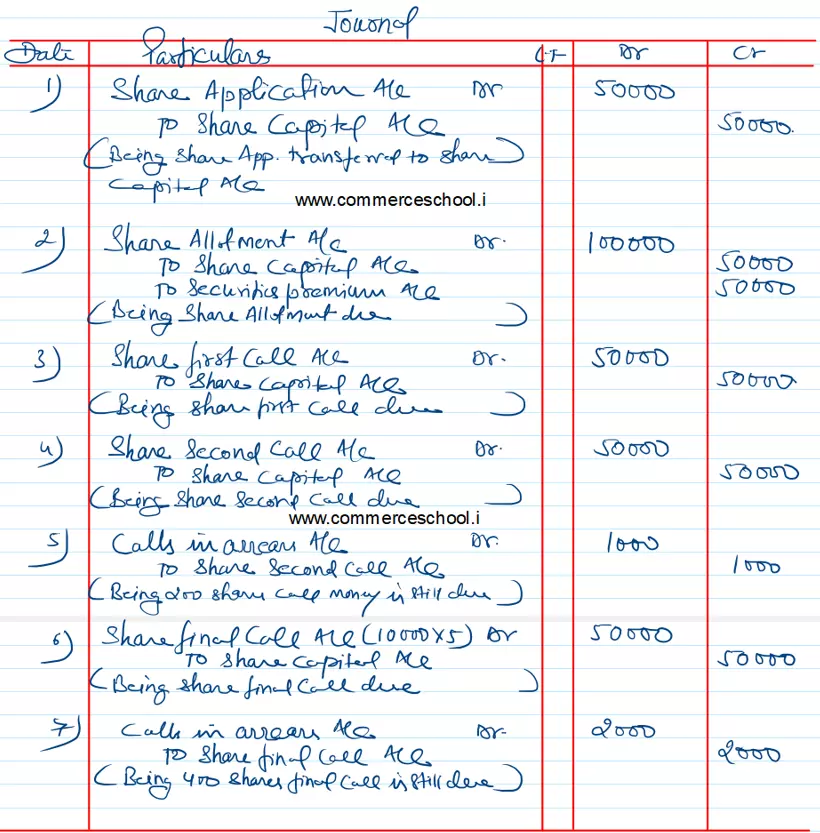 Journal
Date Particulars LF Dr Cr
1) Share Application A/c Dr 50000
To Share Capital A/c 50000.
(Being Share App. transferred to share
Capital A/c )
www.commerceschool.i
2) Share Allotment A/c Dr. 100000
To Share Capital A/c 50000
To Securities premium A/c 50000
(Being Share Allotment due )
3) Share first Call A/c Dr. 50000
To Share Capital A/c 50000
(Being share first Call due )
4) Share Second Call A/c Dr. 50000
To Share Capital A/c 50000
(Being Share Second Call due )
www.commerceschool.i
5) Calls in arrears A/c Dr. 1000
To Share Second Call A/c 1000
(Being 200 share Call money is still due )
6) Share final Call A/c (10000x5) Dr 50000
To Share Capital A/c 50000
(Being share final Call due )
7) Calls in arrears A/c Dr. 2000
To Share final Call A/c 2000
(Being 400 Shares final Call is still due )